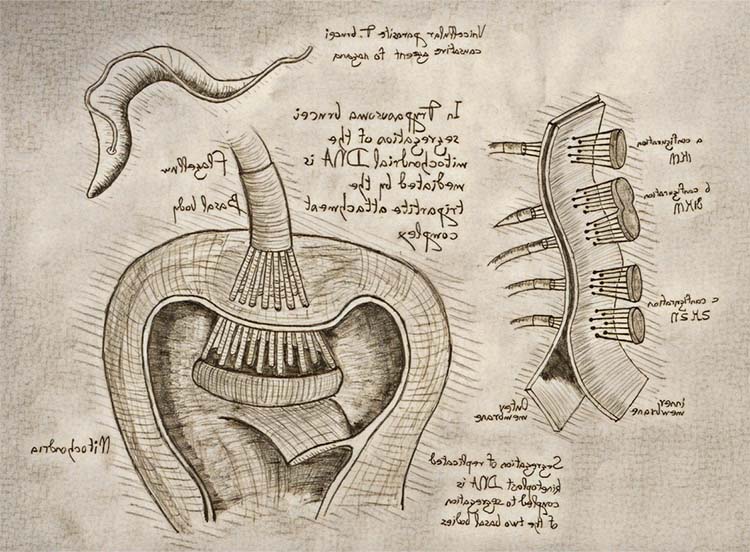 Unicellular parasite T. brucei
causative agent to nagana
In Trypanosoma brucei
segregation of the
mitochondrial DNA is
mediated by the
tripartite attachment
complex
Flagellum
Basal body
Mitochondria
a configuration
1K1N
b configuration
2K1N
c configuration
2K2N
Outer
membrane
inner
membrane
Segregation of replicated
kinetoplast DNA is
coupled to segregation
of the two basal bodies